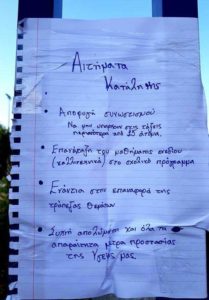 Αιτήματα
Κατάληψης
• Αποφυγή συνωστισμού
Να μην υπάρχουν στις τάξεις
περισσότερα από 15 άτομα.
• Επανένταξη του μαθήματος σχεδίου
(καλλιτεχνικά) στο σχολικό πρόγραμμα
• Ενάντια στην επαναφορά της
τράπεζας θεμάτων
• Συχνή απολύμανση και όλα τα
απαραίτητα μέτρα προστασίας
της υγείας μας